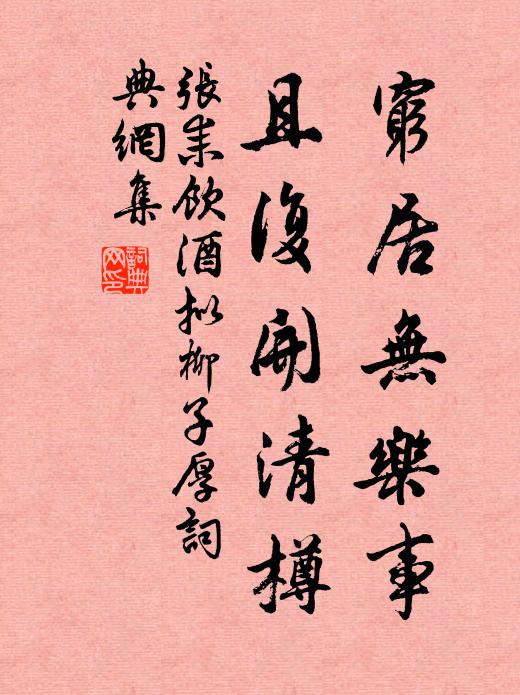 窮居無樂事
且復開清樽
張耒飲酒擬柳子厚詞
典網集
詞典
网印